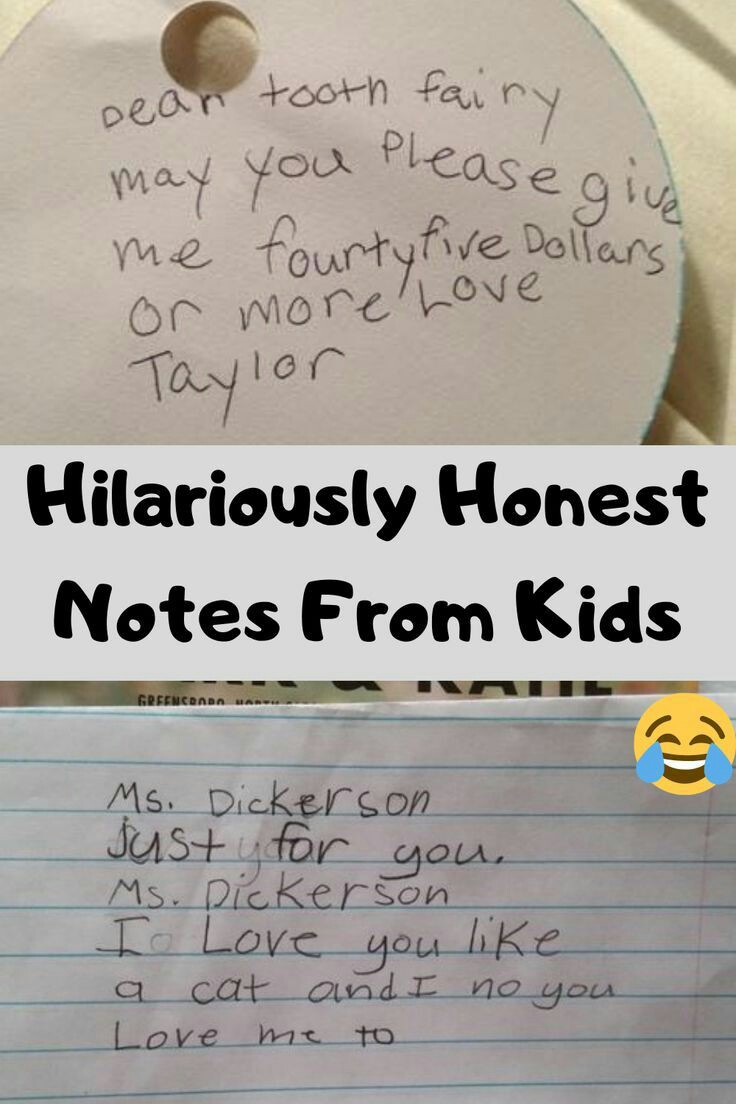 Dear tooth fairy
may you Please give
me fourtyfive Dollars
or more Love
Taylor
Hilariously Honest
Notes From Kids
GREENSBORO
Ms. Dickerson
Just for you.
Ms. Dickerson
I Love you like
a cat and I no you
Love me to